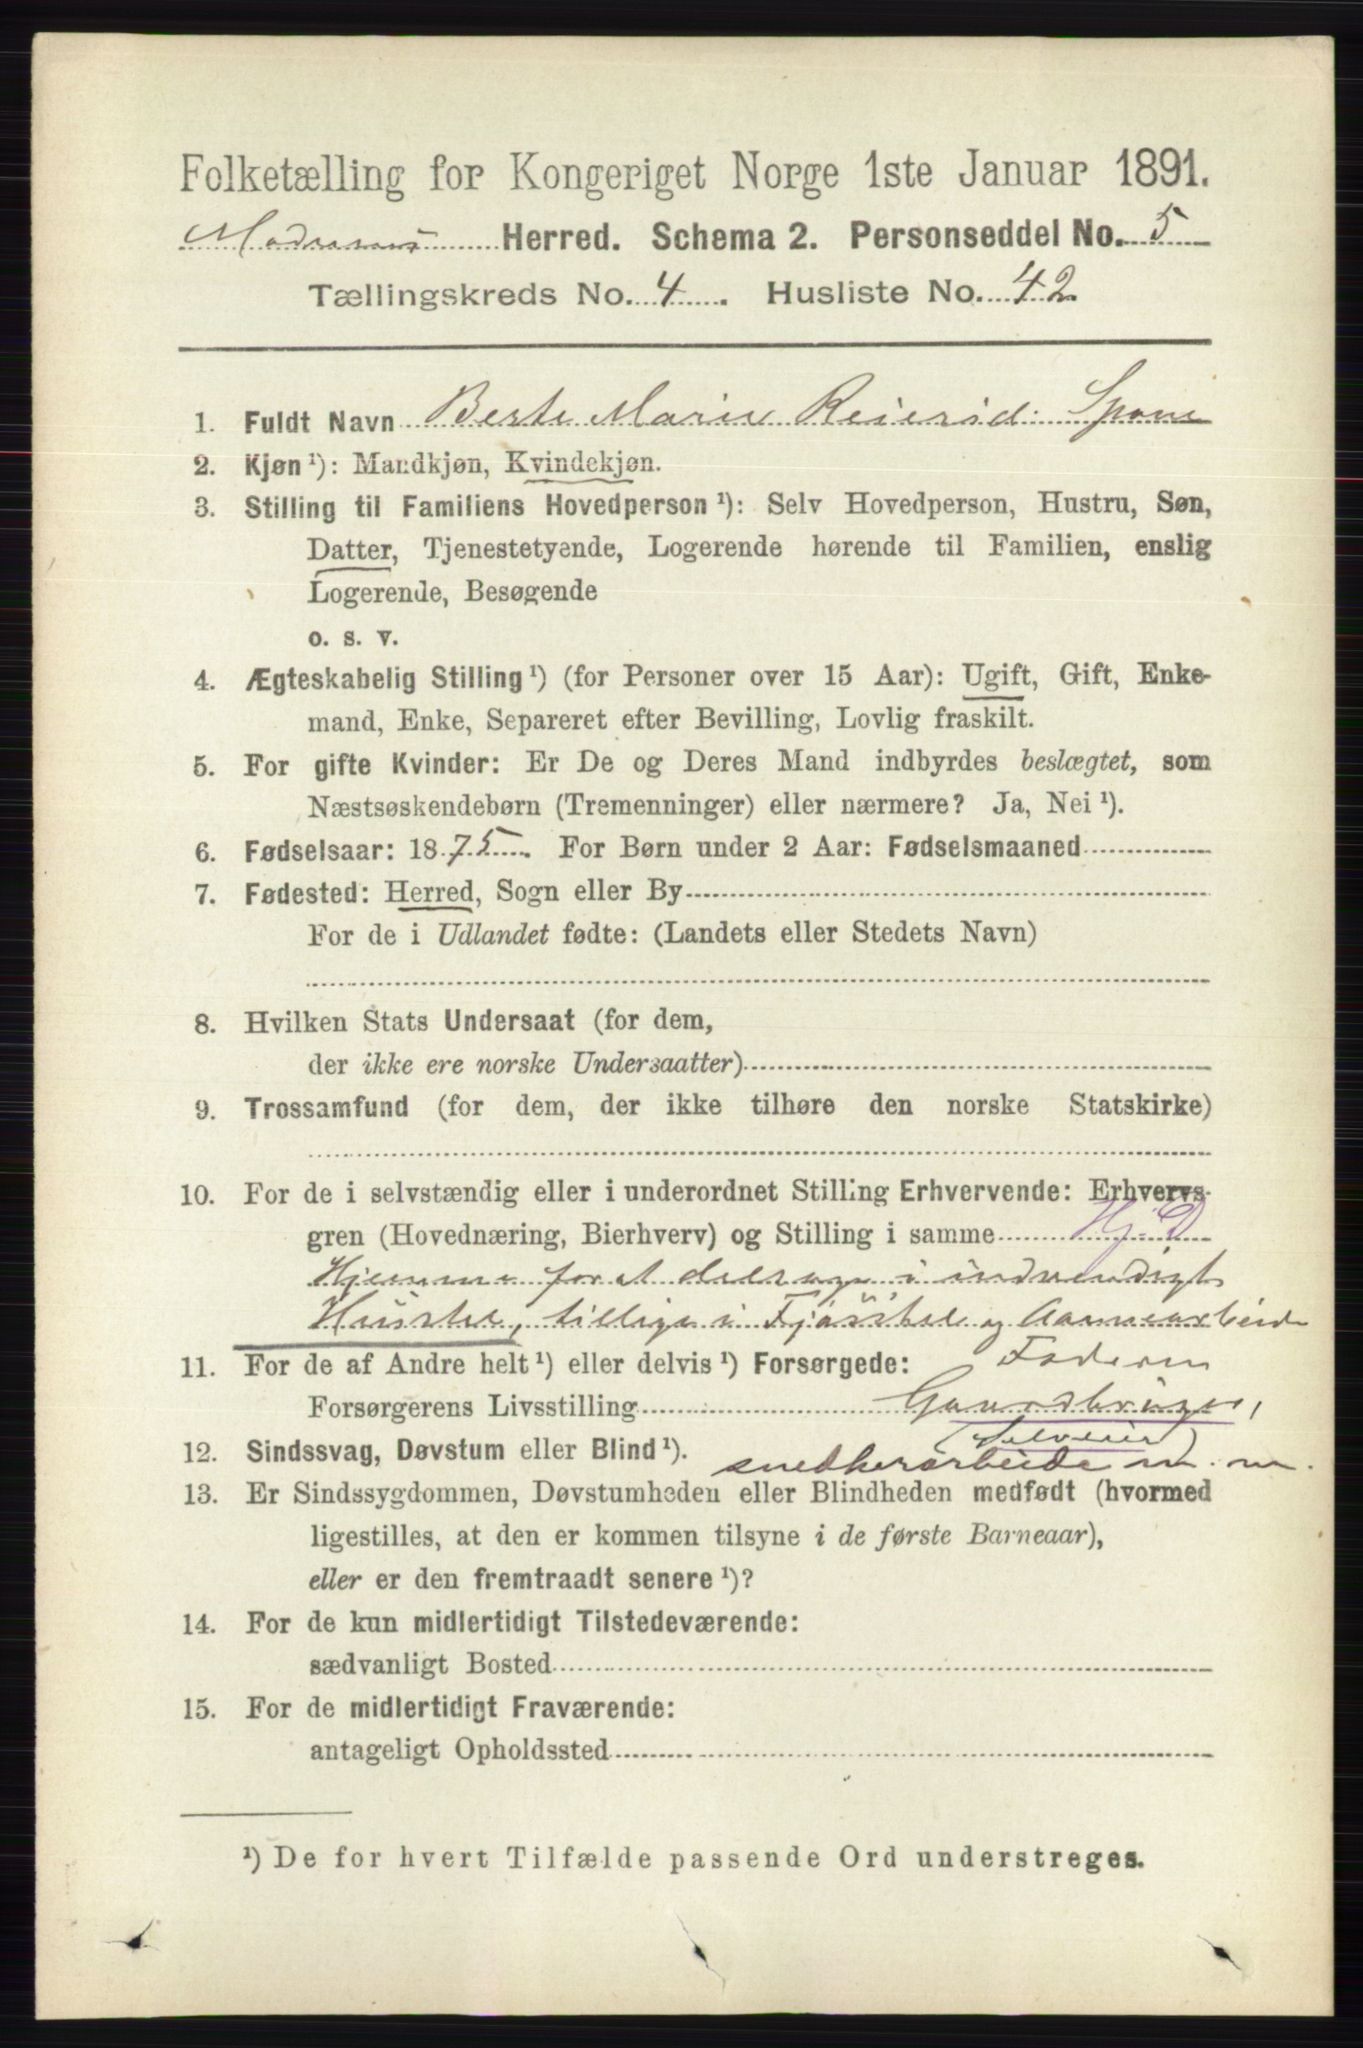 Folketælling for Kongeriget Norge 1ste Januar 1891.
Modums Herred. Schema 2. Personseddel No. 5
Tællingskreds No. 4. Husliste No. 42
1. Fuldt Navn Berte Marie Reierød: Spone
2. Kjøn ¹): Mandkjøn, Kvindekjøn.
3. Stilling til Familiens Hovedperson ¹): Selv Hovedperson, Hustru, Søn,
Datter, Tjenestetyende, Logerende hørende til Familien, enslig
Logerende, Besøgende
o. s. v.
4. Ægteskabelig Stilling ¹) (for Personer over 15 Aar): Ugift, Gift, Enke-
mand, Enke, Separeret efter Bevilling, Lovlig fraskilt.
5. For gifte Kvinder: Er De og Deres Mand indbyrdes beslægtet, som
Næstsøskendebørn (Tremenninger) eller nærmere? Ja, Nei ¹).
6. Fødselsaar: 1875. For Børn under 2 Aar: Fødselsmaaned
7. Fødested: Herred, Sogn eller By
For de i Udlandet fødte: (Landets eller Stedets Navn)
8. Hvilken Stats Undersaat (for dem,
der ikke ere norske Undersaatter)
9. Trossamfund (for dem, der ikke tilhøre den norske Statskirke)
10. For de i selvstændig eller i underordnet Stilling Erhvervende: Erhvervs-
gren (Hovednæring, Bierhverv) og Stilling i samme Hj. D
Hjemme for at deltage i indvendigt
Husstel, tillige i Fjøsstel og Aannearbeide
11. For de af Andre helt ¹) eller delvis ¹) Forsørgede: Faderen
Forsørgerens Livsstilling Gaardbruger,
(Selveier)
12. Sindssvag, Døvstum eller Blind ¹). snedkerarbeide m. m.
13. Er Sindssygdommen, Døvstumheden eller Blindheden medfødt (hvormed
ligestilles, at den er kommen tilsyne i de første Barneaar),
eller er den fremtraadt senere ¹)?
14. For de kun midlertidigt Tilstedeværende:
sædvanligt Bosted
15. For de midlertidigt Fraværende:
antageligt Opholdssted
¹) De for hvert Tilfælde passende Ord understreges.